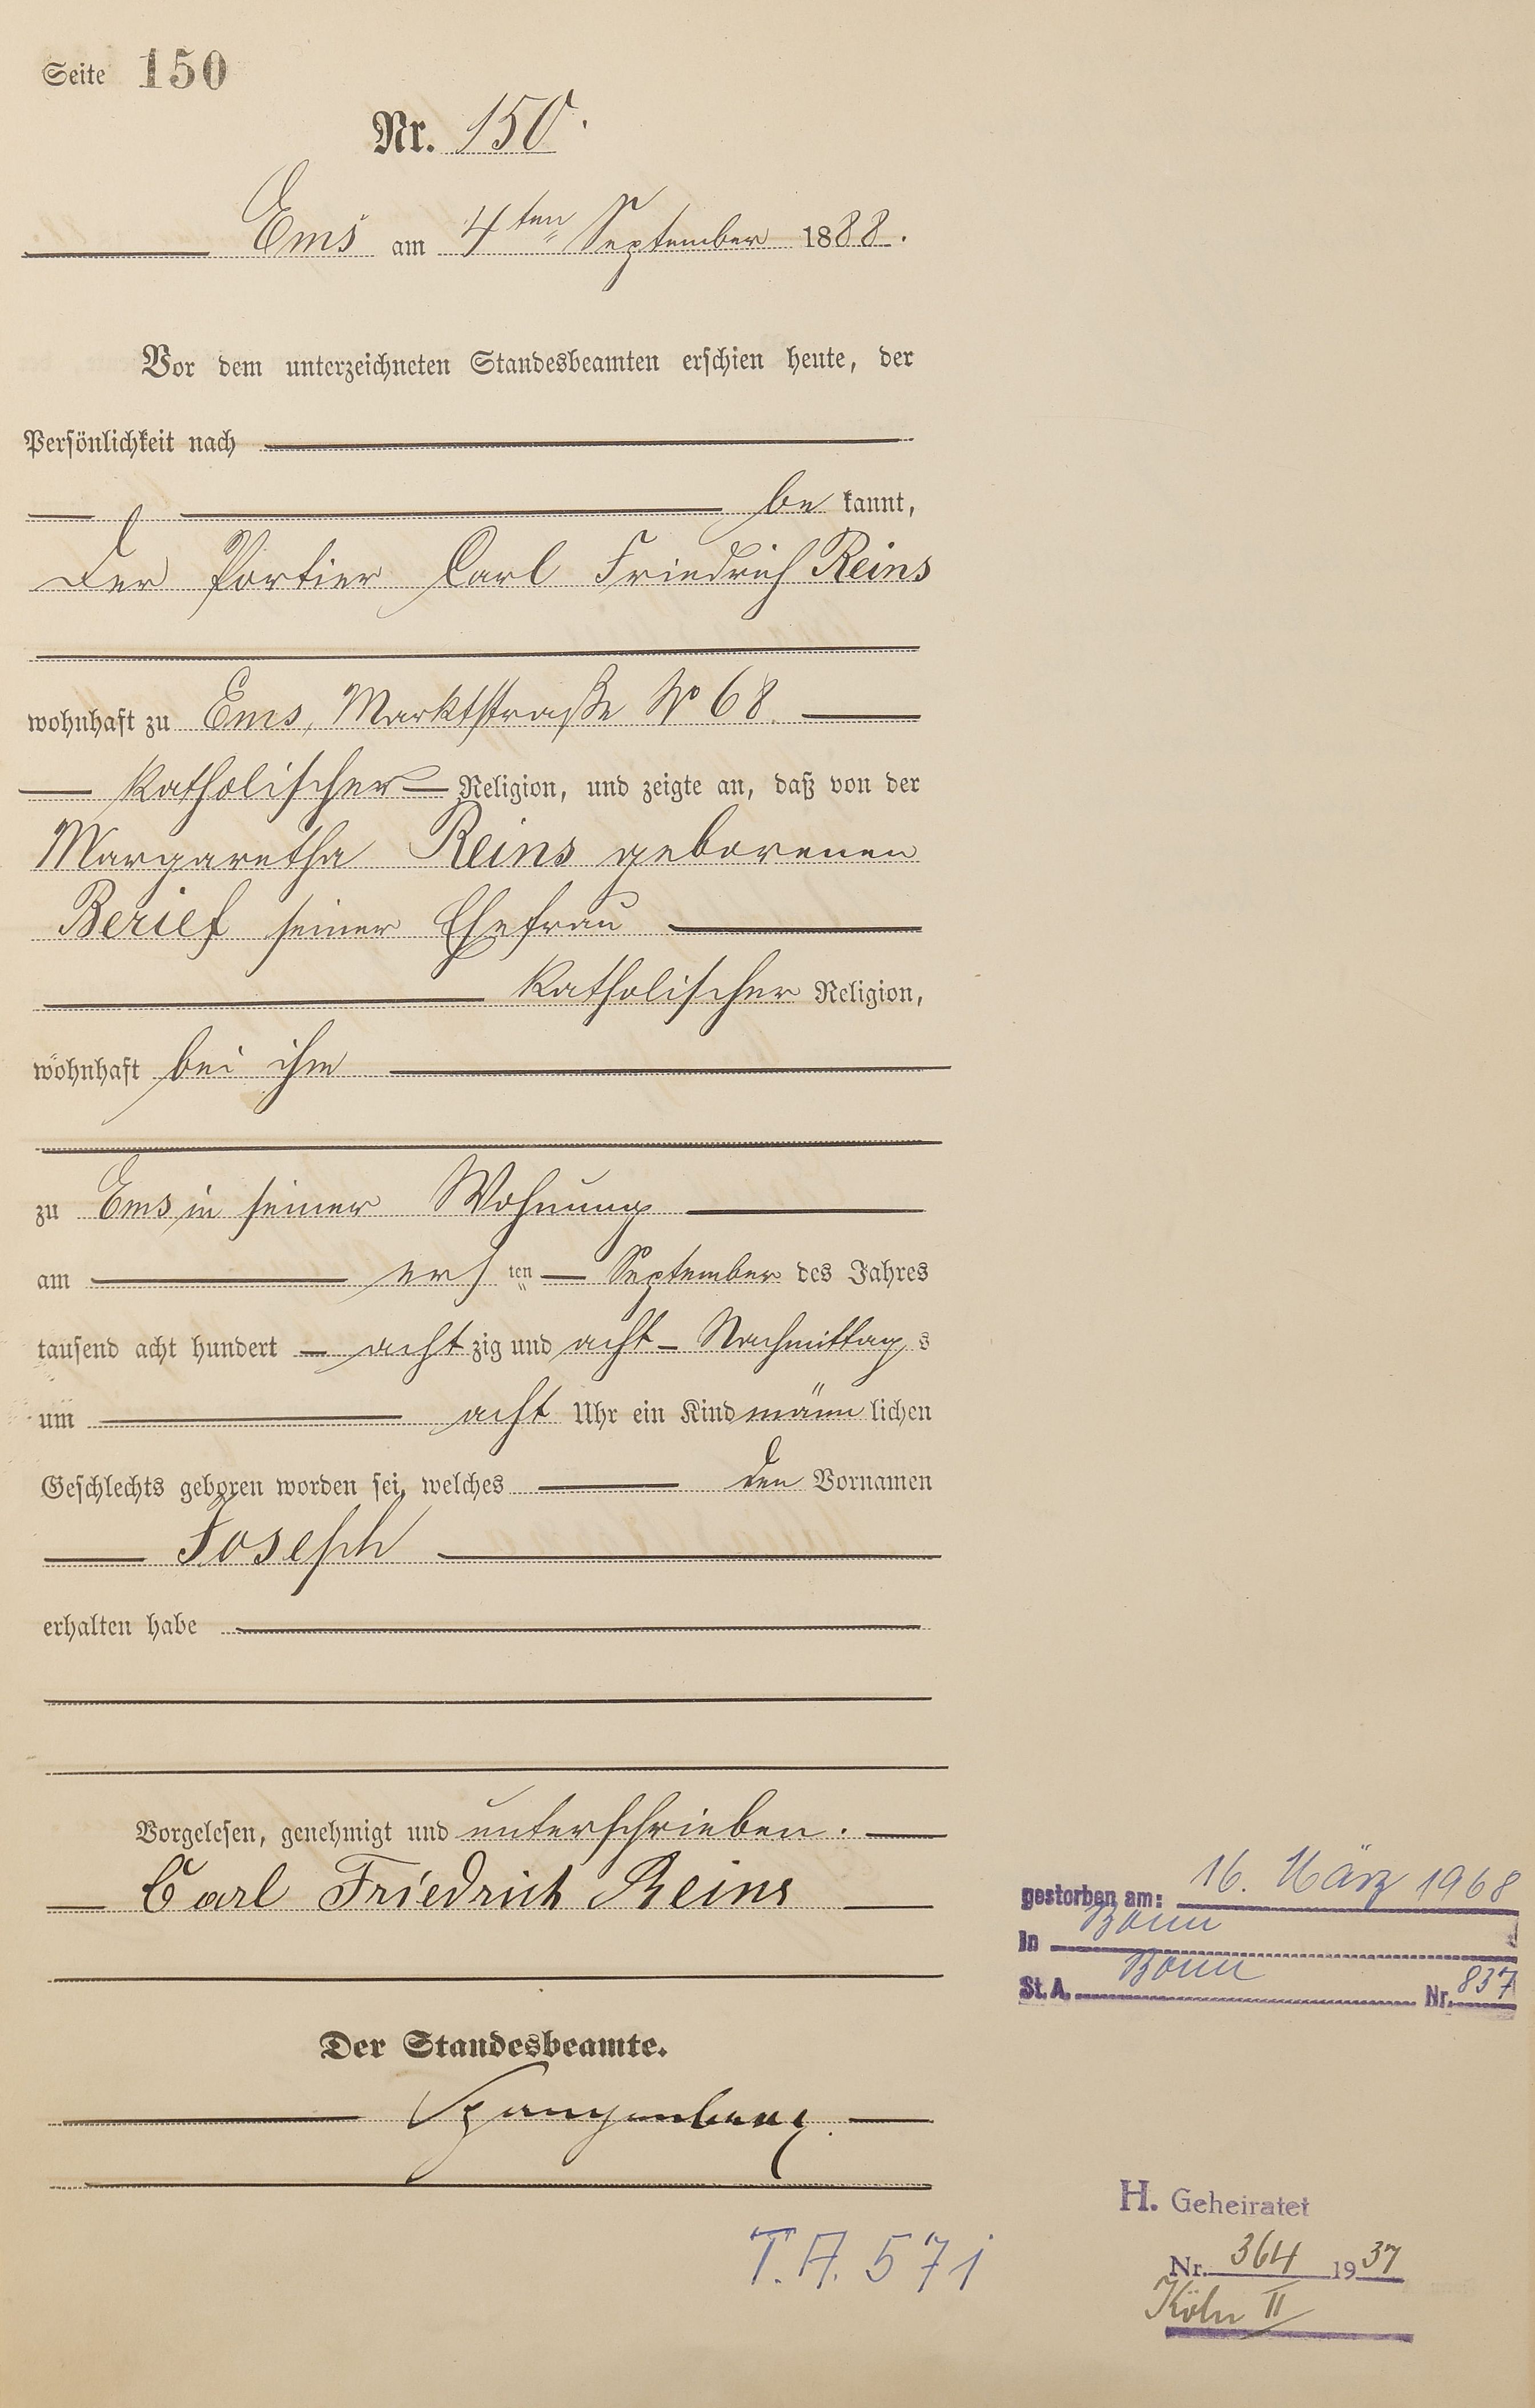 Seite 150
Nr. 150.
Ems am 4ten September 1888.
Vor dem unterzeichneten Standesbeamten erschien heute, der
Persönlichkeit nach
be kannt,
der Portier Carl Friedrich Reins
wohnhaft zu Ems, Marktstraße No 68
katholischer Religion, und zeigte an, daß von der
Margaretha Reins geborenen
Berief seiner Ehefrau
katholischer Religion,
wohnhaft bei ihm
zu Ems in seiner Wohnung
am ersten September des Jahres
tausend acht hundert achtzig und acht Nachmittags
um acht Uhr ein Kind männlichen
Geschlechts geboren worden sei, welches den Vornamen
Joseph
erhalten habe
Vorgelesen, genehmigt und unterschrieben.
Carl Friedrich Reins
Der Standesbeamte.
Spangenberg
T.A. 571
gestorben am: 16. März 1968
In Bonn
St. A. Bonn Nr. 837
H. Geheiratet
Nr. 364 1937
Köln II